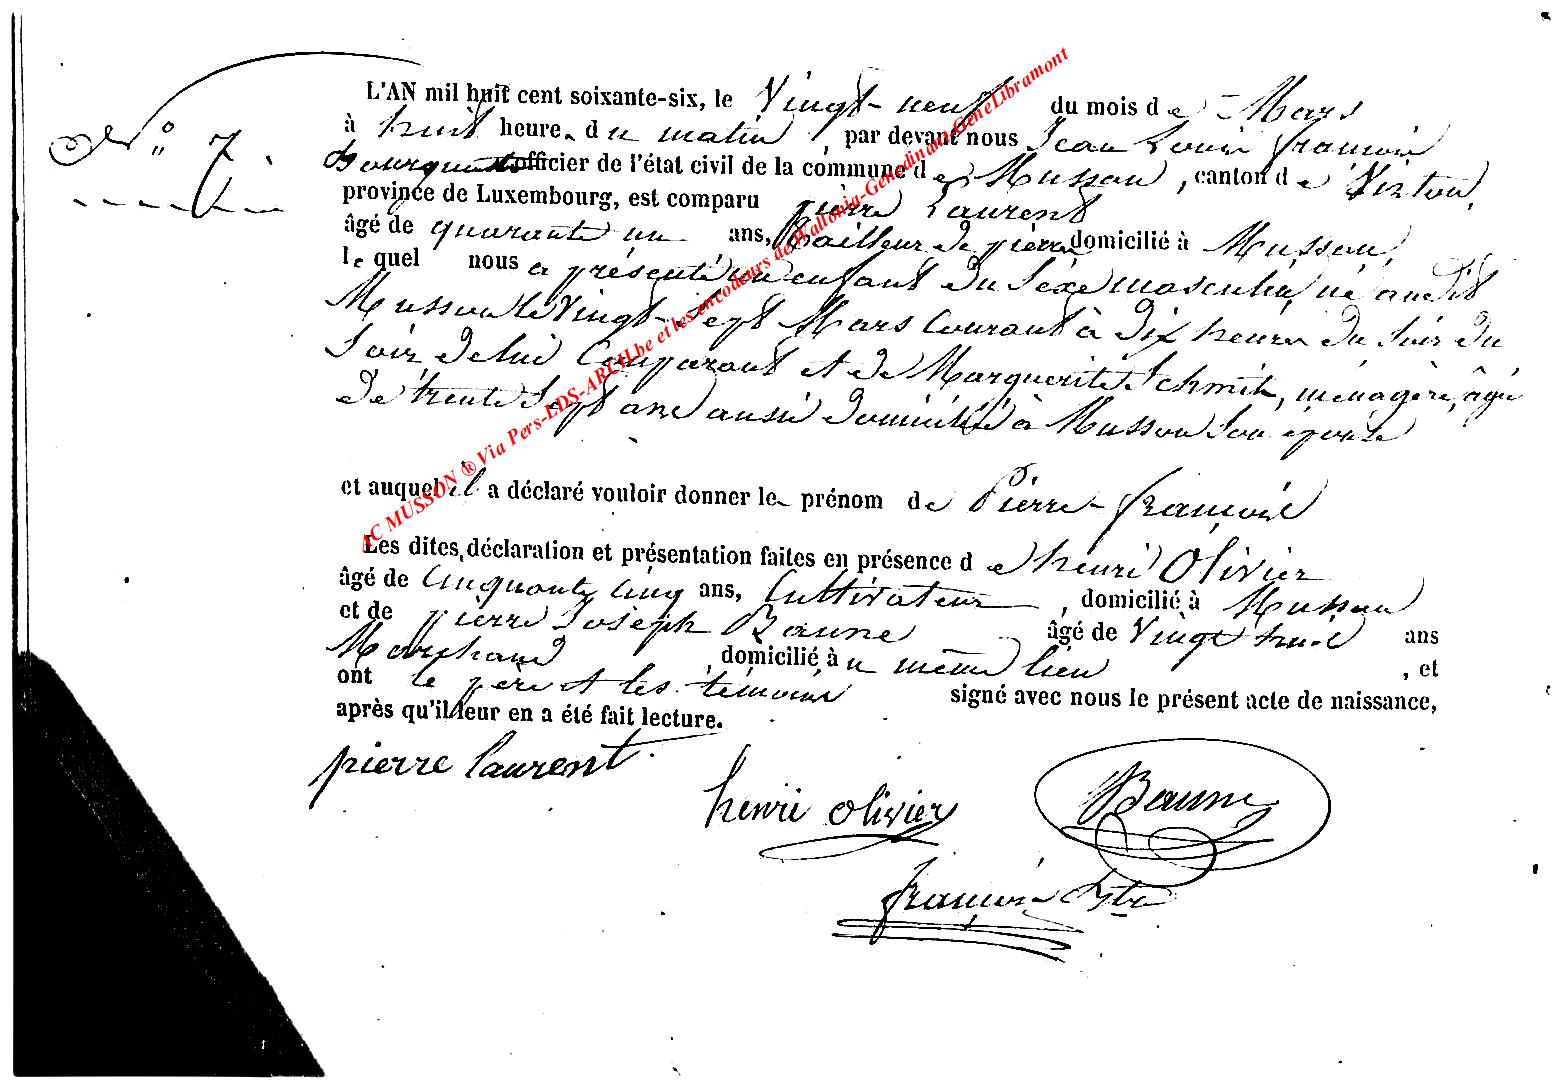 N.° 7.
L'AN mil huit cent soixante-six, le Vingt-neuf du mois de Mars
à huit heure. du matin, par devant nous Jean Louis françois
officier de l'état civil de la commune de Musson, canton de Virton,
province de Luxembourg, est comparu pierre Laurent
âgé de quarante un ans, tailleur de pierre domicilié à Musson,
lequel nous a présenté un enfant du sexe masculin, né audit
Musson le Vingt-sept Mars courant à dix heures du soir du
soir, de lui Comparant et de Marguerite Schmit, ménagère, âgé
de trente sept ans aussi domicilié à Musson son épouse
et auquel il a déclaré vouloir donner le prénom de Pierre-françois
Les dites, déclaration et présentation faites en présence de henri Olivier
âgé de Cinquante cinq ans, Cultivateur, domicilié à Musson
et de pierre Joseph Baune âgé de Vingt huit ans
Marchand, domicilié à u même lieu, et
ont le père et les témoins signé avec nous le présent acte de naissance,
après qu'il leur en a été fait lecture.
pierre laurent
henri olivier
Baune
françois
AC MUSSON ® Via Pers-LDS-ARCH.be et les encodeurs de Wallonia-Genedinant-GeneLibramont